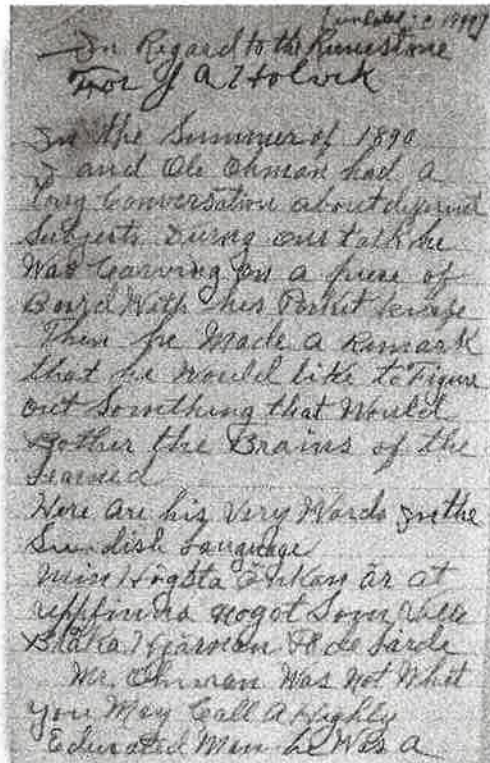 [undated: c 1949]
In Regard to the Runestone
For J A Holvik
In the Summer of 1890
I and Ole Ohman had a
Long Conversation about diferent
Subjects During our talk he
Was Carving on a piece of
Board With his Pocket knife
Then he Made a Remark
that he Would like to Figure
out Something that Would
Bother the Brains of the
Learned
Here Are his Very Words In the
Swedish Language
Min Högsta Önkan är at
uppfinna nogot Som Ville
Bråka Hjärnan På de Lärde
Mr. Ohman Was Not What
you May Call A Highly
Educated Man he Was a